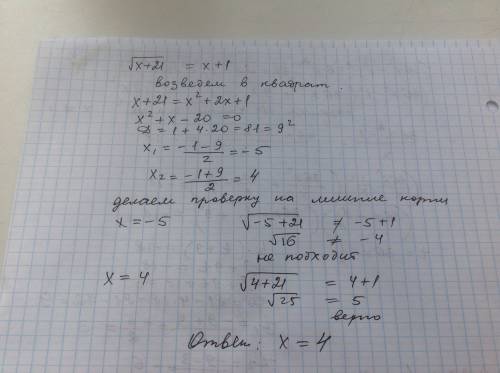 √x+21 = x+1
возведем в квадрат.
x+21 = x²+2x+1
x²+x-20=0
D = 1+4·20=81=9²
x₁ = (-1-9)/2 = -5
x₂ = (-1+9)/2 = 4
делаем проверку на лишние корни
x = -5 √-5+21 ≠ -5+1
√16 ≠ -4
не подходит
x = 4 √4+21 = 4+1
√25 = 5
верно
Ответ: x = 4